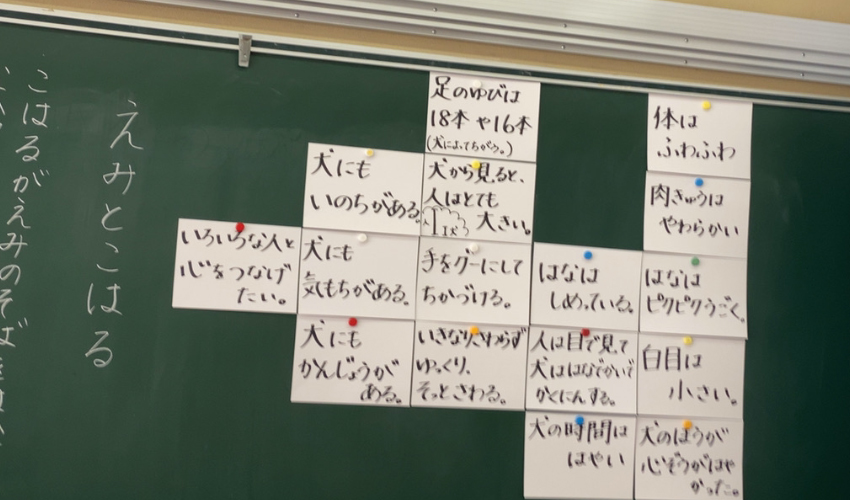 えみとこはる
こはるがえみのそば
足のゆびは
18本や16本
(犬によってちがう。)
体は
ふわふわ
犬にも
いのちがある。
犬から見ると、
人はとても
大きい。
肉きゅうは
やわらかい
いろいろな人と
心をつなげ
たい。
犬にも
気もちがある。
手をグーにして
ちかづける。
はなは
しめっている。
はなは
ピクピクうごく。
犬にも
かんじょうが
ある。
いきなりさわらず
ゆっくり、
そっとさわる。
人は目で見て
犬ははなでかいで
かくにんする。
白目は
小さい。
犬の時間は
はやい
犬のほうが
心ぞうがはや
かった。